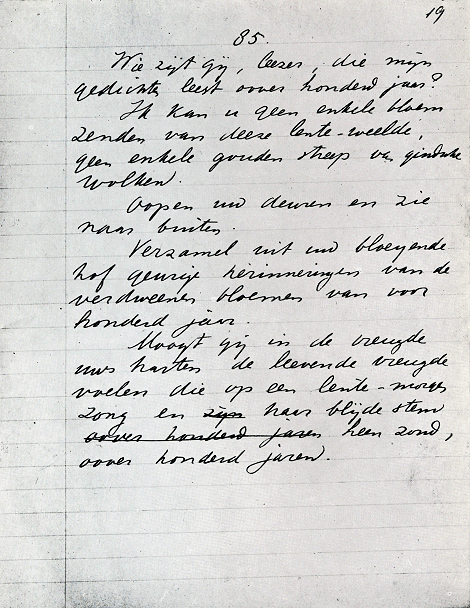 19
85.
Wie zijt gij, leezer, die mijn
gedichten leest oover honderd jaar?
Ik kan u geen enkele bloem
zenden van deeze lente-weelde,
geen enkele gouden streep van gindsche
wolken.
Oopen uw deuren en zie
naar buiten.
Verzamel uit uw bloeyende
hof geurige herinneringen van de
verdweenen bloemen van voor
honderd jaar.
Moogt gij in de vreugde
uws harten de leevende vreugde
voelen die op een lente-morgen
zong en zijn haar blijde stem
oover honderd jaren heen zond,
oover honderd jaren.